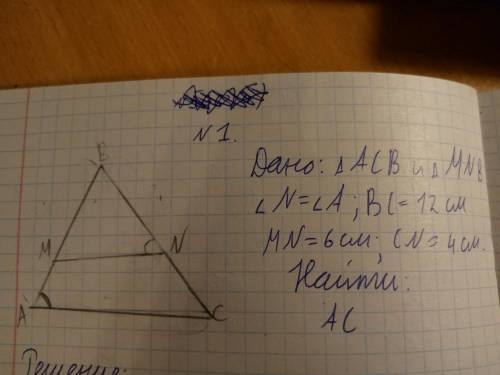 N1.
B
M
N
A
C
Дано: △ ACB и △ MNB
∠N=∠A; BC=12 см
MN=6 см; CN=4 см.
Найти:
AC
Решение: